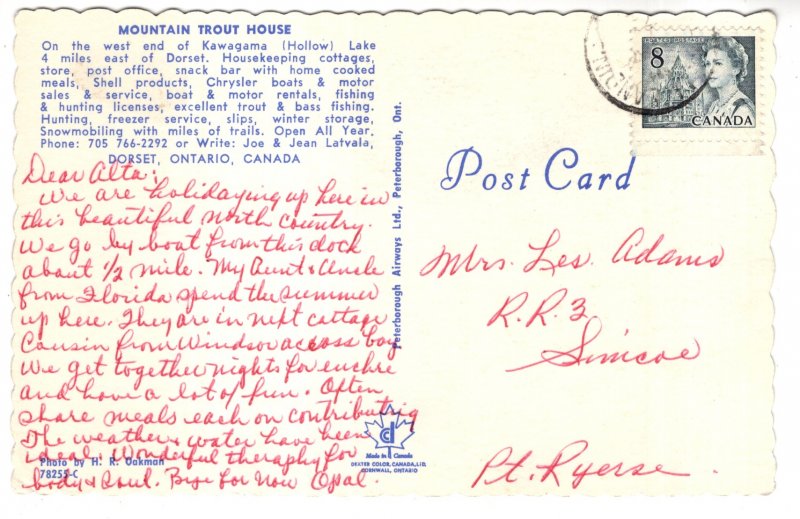 MOUNTAIN TROUT HOUSE
On the west end of Kawagama (Hollow) Lake
4 miles east of Dorset. Housekeeping cottages,
store, post office, snack bar with home cooked
meals, Shell products, Chrysler boats & motor
sales & service, boat & motor rentals, fishing
& hunting licenses, excellent trout & bass fishing.
Hunting, freezer service, slips, winter storage,
Snowmobiling with miles of trails. Open All Year.
Phone: 705 766-2292 or Write: Joe & Jean Latvala,
DORSET, ONTARIO, CANADA
Dear Alta:
We are holidaying up here in
this beautiful north country.
We go by boat from this dock
about 1/2 mile. My Aunt & Uncle
from Florida spend the summer
up here. They are in next cottage
Cousin from Windsor across bay
We get together nights for euchre
and have a lot of fun. Often
share meals each on contributing
The weather & water have been
ideal. Wonderful theraphy for
body & soul. Bye for now Opal.
Photo by H. R. Oakman
78255-C
Peterborough Airways Ltd., Peterborough, Ont.
Made in Canada
DEXTER COLOR, CANADA, LTD.
CORNWALL, ONTARIO
Post Card
8
POSTES POSTAGE
CANADA
Mrs. Les. Adams
R.R. 3
Simcoe
Pt. Ryerse.